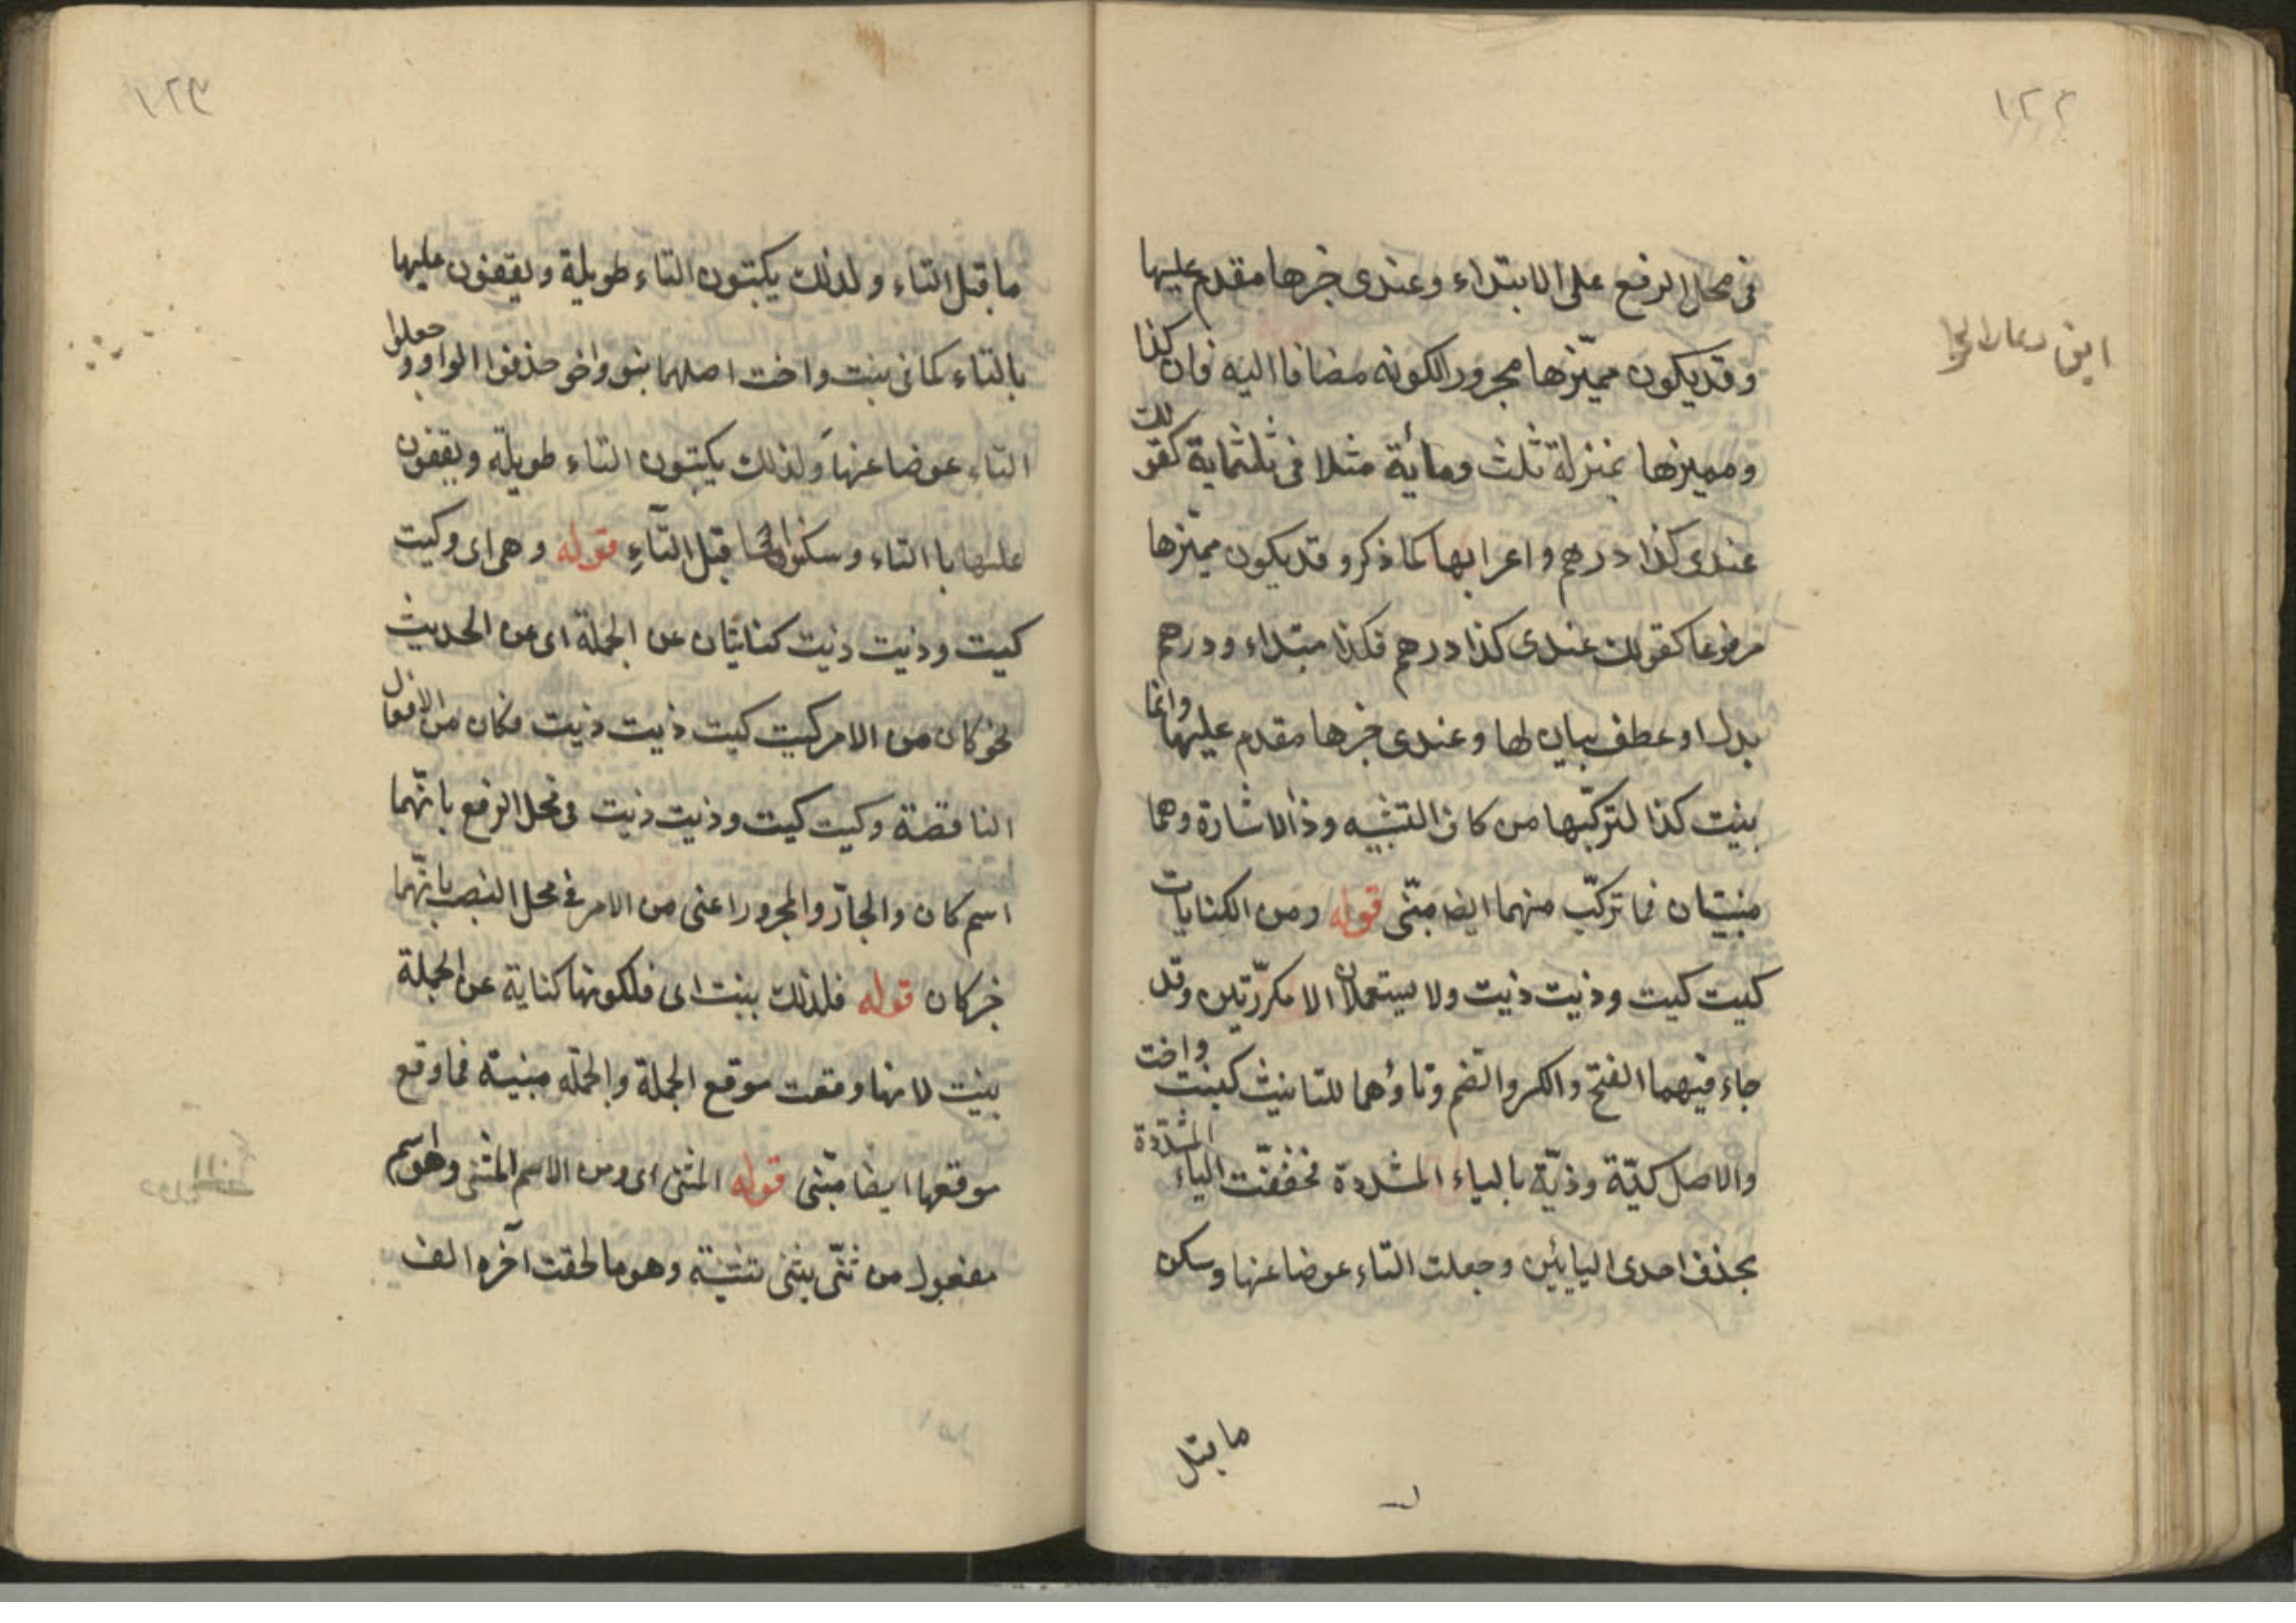 في محل الرفع على الابتداء وعندي خبرها مقدم عليها
وقد يكون مميّزها مجرورا لكونه مضافا اليه فان كذا
ومميزها بمنزلة ثلث ومائة مثلا في ثلثماية كقولك
عندي كذا درهم واعرابها كما ذكر وقد يكون مميّزها
مرفوعا كقولك عندي كذا درهم فكذا مبتداء ودرهم
بدل او عطف بيان لها وعندي خبرها مقدم عليها وانما
بنيت كذا لتركّبها من كاف التشبيه وذا الاشارة وهما
مبنيّان فما تركّب منهما ايضا مبنّى قوله ومن الكنايات
كيت كيت وذيت ذيت ولا يستعملان الا مكرّرتين وقد
جاء فيهما الفتح والكسر والضم وتاؤهما للتانيث كبنت واخت
والاصل كيّة وذيّة بالياء المشددة فخففّت الياء المشدّدة
بحذف احدى اليائين وجعلت التاء عوضا عنها وسكن
ما قبل
ما قبل التاء ولذلك يكتبون التاء طويلة ويقفون عليها
بالتاء كما في بنت واخت اصلهما بنو واخو حذفوا الواو وجعلوا
التاء عوضا عنها ولذلك يكتبون التاء طويلة ويقفون
عليها باالتاء وسكنوا ما قبل التآء قوله وهى اى وكيت
كيت وذيت ذيت كنايتان عن الجملة اى عن الحديث
نحو كان من الامر كيت كيت ذيت ذيت فكان من الافعال
الناقصة وكيت كيت وذيت ذيت في محل الرفع بانّهما
اسم كان والجارّ والمجرور اعنى من الامر في محل النصب بانّهما
خبر كان قوله فلذلك بنيت اى فلكونها كناية عن الجملة
بنيت لانها وقعت موقع الجملة والجملة مبنية فما وقع
موقعها ايضا مبنّى قوله المثنى اى ومن الاسم المثنى وهو اسم
مفعول من ثنّى يثنى تثنية وهو ما لحقت آخره الف